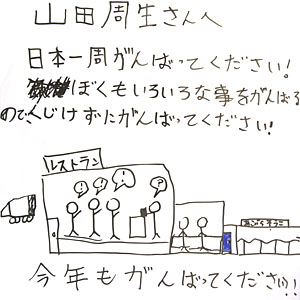 山田周生さんへ
日本一周がんばってください!
ぼくもいろいろな事をがんばる
ので、くじけずにがんばってください!
レストラン
! ! ! ?
今年もがんばってください!!